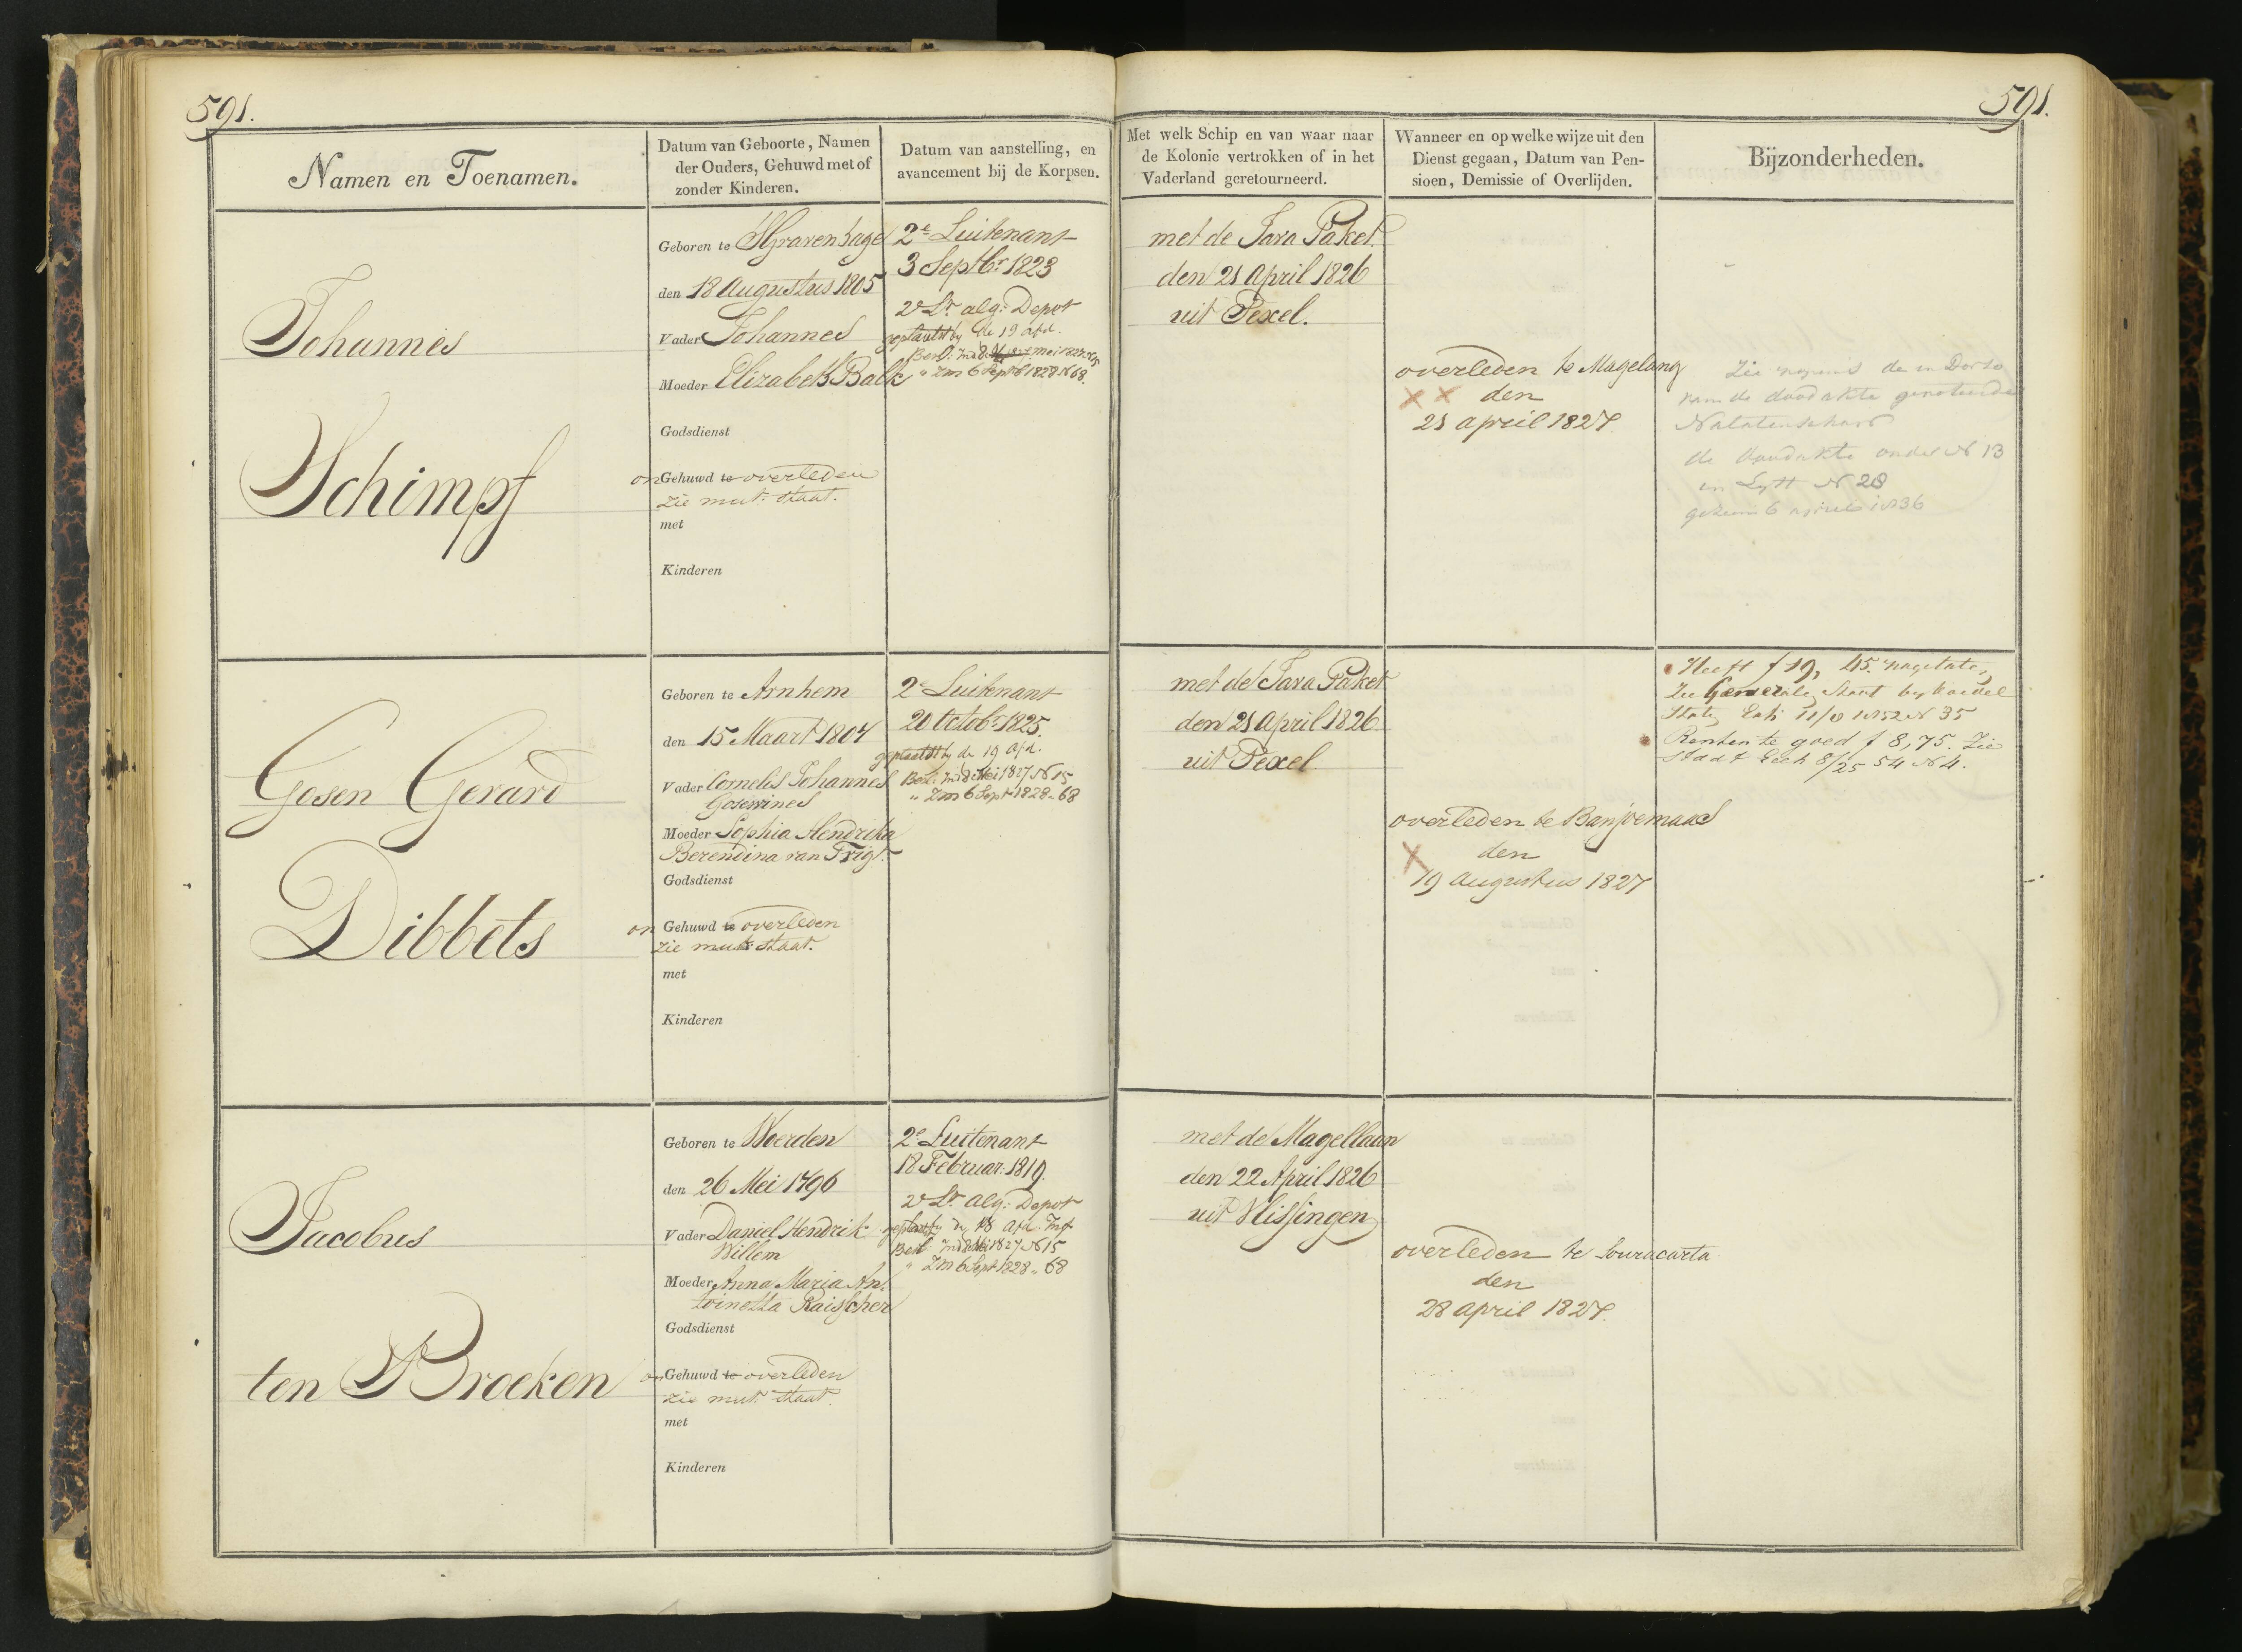 591.
591.
Namen en Toenamen.
Datum van Geboorte, Namen
der Ouders, Gehuwd met of
zonder Kinderen.
Datum van aanstelling, en
avancement bij de Korpsen.
Met welk Schip en van waar naar
de Kolonie vertrokken of in het
Vaderland geretourneerd.
Wanneer en op welke wijze uit den
Dienst gegaan, Datum van Pen-
sioen, Demissie of Overlijden.
Bijzonderheden.
Johannes
Schimpf
Geboren te SGravenhage
den 18 Augustus 1805
Vader Johannes
Moeder Elizabeth Balk
Godsdienst
on Gehuwd te overleden
zie mut: staat.
met
Kinderen
2e Luitenant
3 Septbr 1823
2e Lt alg: Depot
geplaatst by de 19 afd.
Besl: Ind 8 mei 1827 N 15
" Zm 6 Sept 1828 N 68.
met de Java Paket
den 21 April 1826
uit Texel.
overleden te Magelang
den
21 april 1827
Zie de in Dorso
van de doodakte genoteerde
Nalatenschap
de doodakte onder N 13
N 28
6 april 1836
Gosen Gerard
Dibbets
Geboren te Arnhem
den 15 Maart 1804
Vader Cornelis Johannes
Goserines
Moeder Sophia Hendrika
Berendina van Trigt.
Godsdienst
on Gehuwd te overleden
zie mut: staat.
met
Kinderen
2e Luitenant
20 Octobr 1825.
geplaatst by de 19 afd.
Besl: Ind 8 Mei 1827 N 15
" Zm 6 Sept 1828 " 68
met de Java Paket
den 21 April 1826
uit Texel
overleden te Banjoemaas
den
19 augustus 1827
Heeft f 19, 45. nagelaten,
Zie Generale Staat by
Staten 11/0 1852 N 35
Renten te goed f 8,75. Zie
Staat 8/25 54 N 4.
Jacobus
ten Broeken
Geboren te Woerden
den 26 Mei 1796
Vader Daniel Hendrik
Willem
Moeder Anna Maria An-
toinetta Raisscher
Godsdienst
on Gehuwd te overleden
zie mut: staat.
met
Kinderen
2e Luitenant
18 Februar: 1819.
2e Lt alg: Depot
geplaatst by de 18 afd. Inf
Besl Ind 8 Mei 1827 N 15
" Zm 6 Sept 1828 " 68
met de Magellaan
den 22 April 1826
uit Vlissingen
overleden te Souracarta
den
28 april 1827.